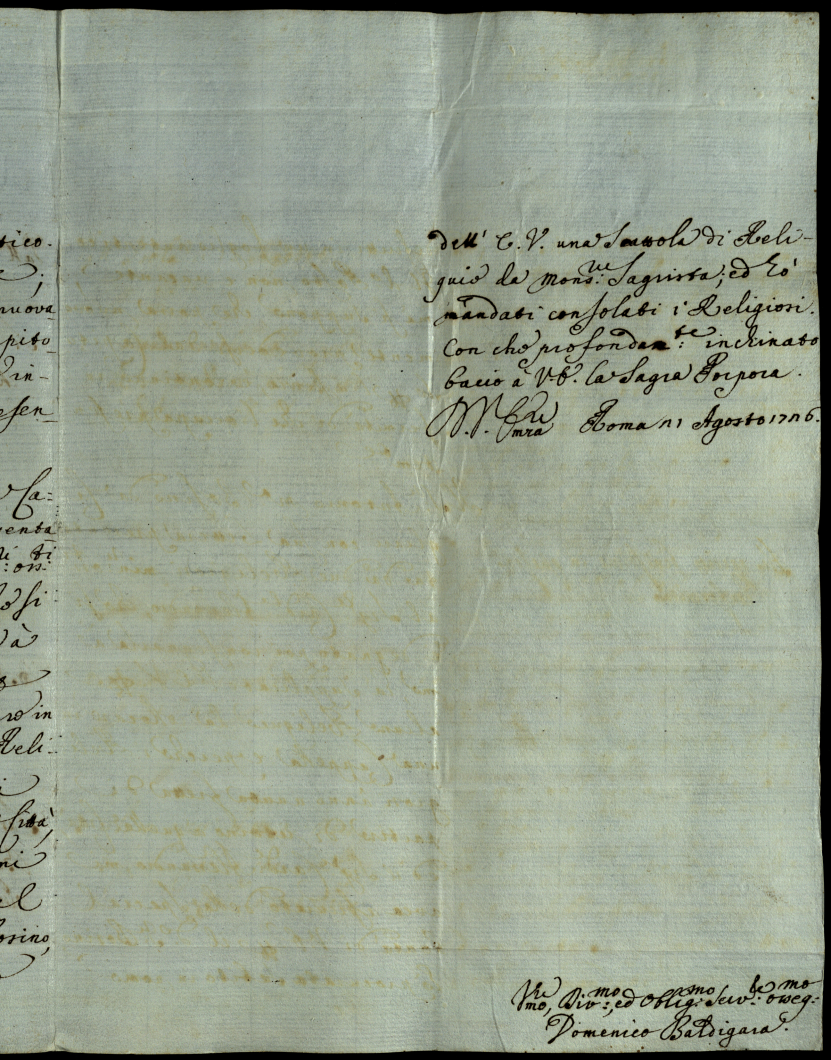 tico.
e;
nuova
pito
in-
esen
Ca:
venta
ti
osi
à
ro in
Reli:
Città,
ni
el
osino,
dell' E. V. una Scattola di Reli-
quie da Mons.re Sagrista; ed hò
mandati consolati i Religiosi.
Con che profondam.te inchinato
bacio à V.E. la Sagra Porpora.
Roma 21 Agosto 1726.
Umo, Divmo:, ed Obligmo: Servre: ossegmo:
Domenico Baldigara.